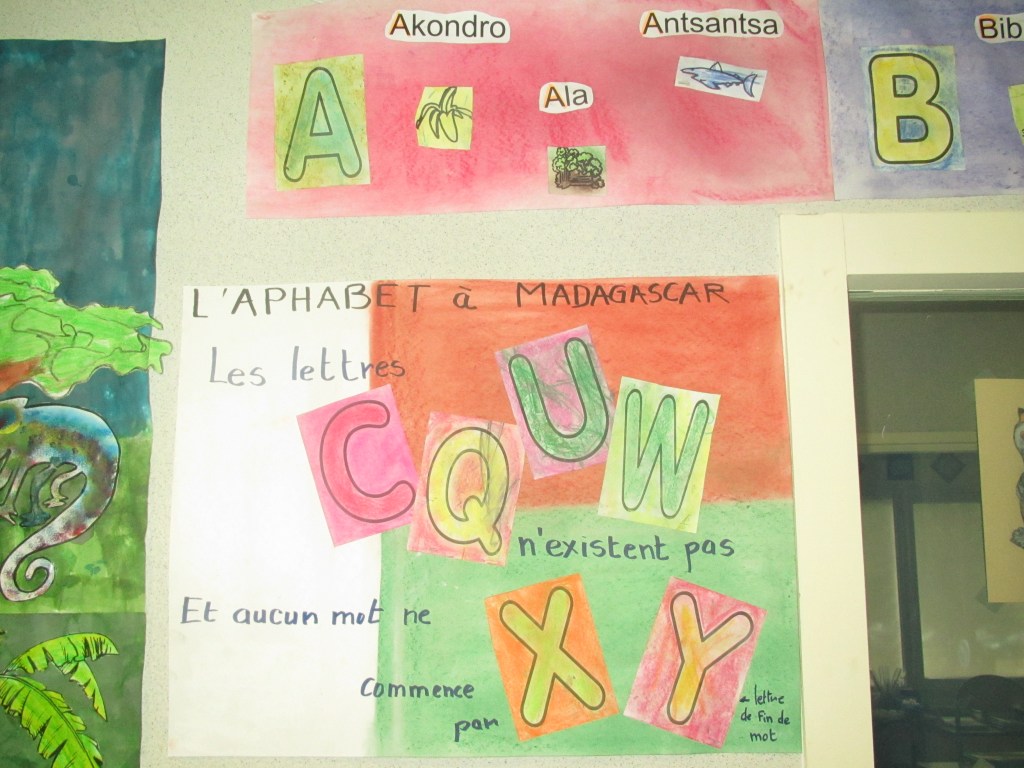 Akondro
Antsantsa
Bib
A
Ala
B
L'APHABET à MADAGASCAR
Les lettres
C Q U W
n'existent pas
Et aucun mot ne
commence
par
X Y
lettre
de fin de
mot